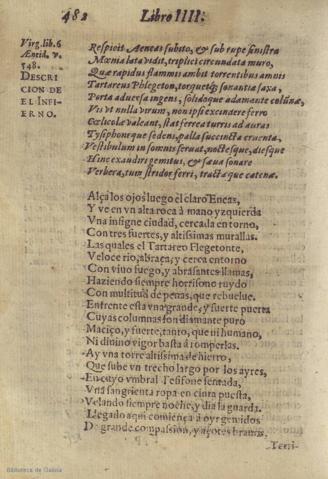 482 Libro IIII.
Virg. lib. 6
Aeneid. v.
548.
DESCRI
CION DE
EL INFI-
ERNO.
Respicit Aeneas subito, & sub rupe sinistra
Mœnia lata vidit, triplici circundata muro,
Quæ rapidus flammis ambit torrentibus amnis
Tartareus Phlegeton, torquetq; sonantia saxa,
Porta aduersa ingens, solidoque adamante colūnæ,
Vis vt nulla virum, non ipsi excindere ferro
Cælicolæ valeant, stat ferrea turris ad auras
Tysiphoneque sedens, palla succincta cruenta,
Vestibulum in somnis seruat, noctesque, diesque
Hinc exaudiri gemitus, & sæua sonare
Verbera, tum stridor ferri, tractæque catenæ.
Alça los ojos luego el claro Eneas,
Y ve en vn alta roca à mano yzquierda
Vna insigne ciudad, cercada en torno,
Con tres fuertes, y altissimas murallas.
Las quales el Tartareo Flegetonte,
Veloce rio, abraça, y cerca entorno
Con viuo fuego, y abrasantes llamas,
Haziendo siempre horrisono ruydo
Con multitud de peñas, que rebuelue.
Enfrente esta vna grande, y fuerte puerta
Cuyas columnas son diamante puro
Maciço, y fuerte, tanto, que ni humano,
Ni diuino vigor basta à romperlas.
Ay vna torre altissima de hierro,
Que sube vn trecho largo por los ayres,
En cuyo vmbral Tesifone sentada,
Vna sangrienta ropa en cinta puesta,
Velando siempre noche, y dia la guarda.
Llegado aqui començò à oyr gemidos
De grande compassion, y açotes brauos,
Terri-
Biblioteca de Galicia